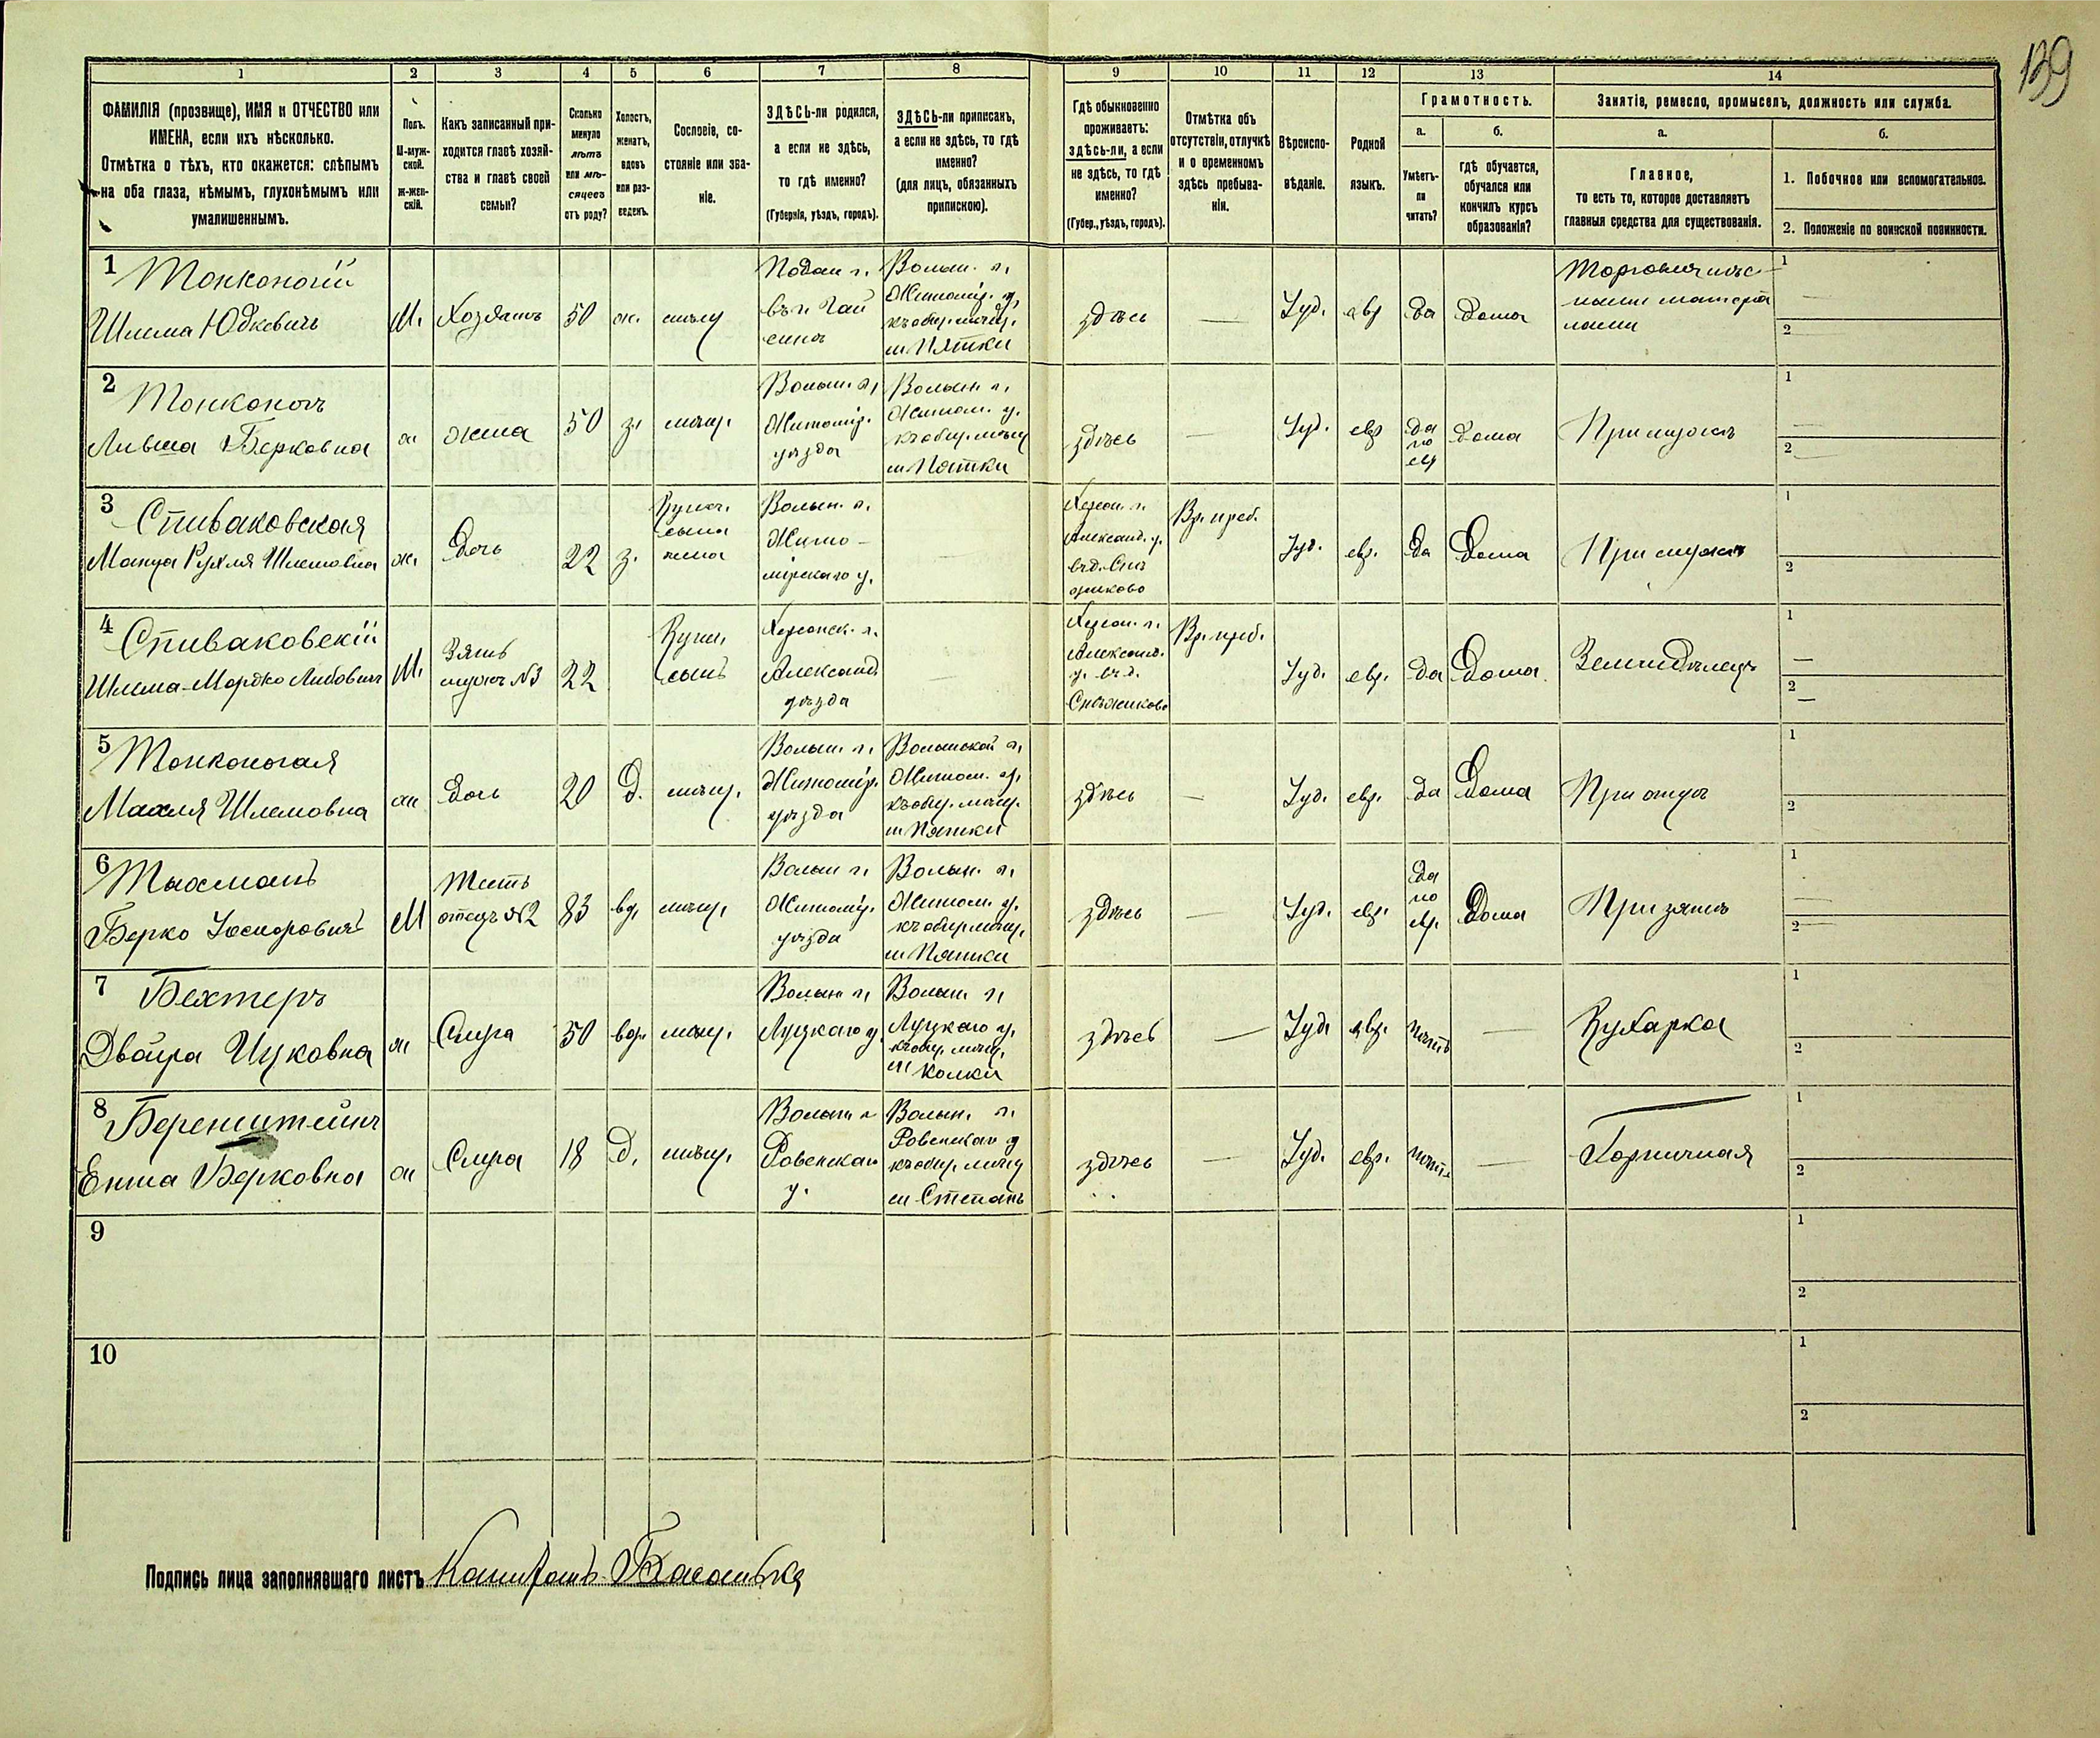 139
1 2 3 4 5 6 7 8 9 10 11 12 13 14
ФАМИЛІЯ (прозвище), ИМЯ и ОТЧЕСТВО или
ИМЕНА, если ихъ нѣсколько.
Отмѣтка о тѣхъ, кто окажется: слѣпымъ
на оба глаза, нѣмымъ, глухонѣмымъ или
умалишеннымъ.
Полъ.
М-муж-
ской.
ж-жен-
скій.
Какъ записанный при-
ходится главѣ хозяй-
ства и главѣ своей
семьи?
Сколько
минуло
лѣтъ
или мѣ-
сяцевъ
отъ роду?
Холостъ,
женатъ,
вдовъ
или раз-
веденъ.
Сословіе, со-
стояніе или зва-
ніе.
ЗДѢСЬ-ли родился,
а если не здѣсь,
то гдѣ именно?
(Губернія, уѣздъ, городъ).
ЗДѢСЬ-ли приписанъ,
а если не здѣсь, то гдѣ
именно?
(для лицъ, обязанныхъ
припискою).
Гдѣ обыкновенно
проживаетъ:
здѣсь-ли, а если
не здѣсь, то гдѣ
именно?
(Губер., уѣздъ, городъ).
Отмѣтка объ
отсутствіи, отлучкѣ
и о временномъ
здѣсь пребыва-
ніи.
Вѣроиспо-
вѣданіе.
Родной
языкъ.
Грамотность.
а.
Умѣетъ-
ли
читать?
б.
гдѣ обучается,
обучался или
кончилъ курсъ
образованія?
Занятіе, ремесло, промыселъ, должность или служба.
а.
Главное,
то есть то, которое доставляетъ
главныя средства для существованія.
б.
1. Побочное или вспомогательное.
2. Положеніе по воинской повинности.
1
Тонконогій
Шлема Юдкевичъ
М.
Хозяинъ
50
ж.
мѣщ
Подол г.
въ г. Гай
синѣ
Волын. г.
Житомір. у.
къ общ. мѣщ.
м Пятки
здѣсь
—
Іуд.
евр
да
дома
Торговля лѣс-
ными матеріа
лами
1
2
2
Тонконогъ
Ливша Берковна
ж
жена
50
з.
мѣщ.
Волын. г.
Житомір.
уѣзда
Волын г.
Житом. у.
къ общ. мѣщ
м Пятки
здѣсь
—
Іуд.
евр
да
по
евр
дома
При мужѣ
1
2
3
Спиваковская
Манця Рухля Шлемовна
ж.
Дочь
22
з.
Купеч.
сына
жена
Волын. г.
Жито-
мірскаго у.
Херсон. г.
Александ. у.
въ д. Снѣ
жиково
Вр. преб.
Іуд.
евр.
да
Дома
При мужѣ
1
2
4
Спиваковскій
Шлема-Мордко Либовичъ
М.
Зять
мужъ №3
22
Купеч.
сынъ
Херсонск. г.
Александ.
уѣзда
Херсон. г.
Александ.
у. въ д.
Снѣжиково
Вр. преб.
Іуд.
евр.
да
Дома.
Земледѣлецъ
1
2
5
Тонконогая
Махля Шлемовна
ж
Дочь
20
д.
мѣщ.
Волын. г.
Житомір.
уѣзда
Волынской г.
Житом. у.
къ общ. мѣщ.
м Пятки
здѣсь
—
Іуд.
евр.
да
Дома
При отцѣ
1
2
6
Тахманъ
Берко
М
Тесть
отецъ №2
83
вд.
мѣщ.
Волын г.
Житомір.
уѣзда
Волын. г.
Житом. у.
къ общ. мѣщ.
м Пятки
здѣсь
—
Іуд.
евр.
да
по
евр.
дома
При зятѣ
1
2
7
Бехтеръ
Двойра Ицковна
ж
Слуга
50
вдо
мѣщ.
Волын г.
Луцкаго у
Волын г.
Луцкаго у.
къ общ. мѣщ.
м Колки
здѣсь
—
Іуд.
евр.
нѣтъ
—
Кухарка
1
2
8
Беренштейнъ
Ента Берковна
ж
Слуга
18
д.
мѣщ.
Волын г
Ровенскаго
у.
Волын. г.
Ровенскаго у
къ общ. мѣщ
м Степань
здѣсь
—
Іуд.
евр.
нѣтъ
—
Горничная
1
2
9
1
2
10
1
2
Подпись лица заполнявшаго листъ